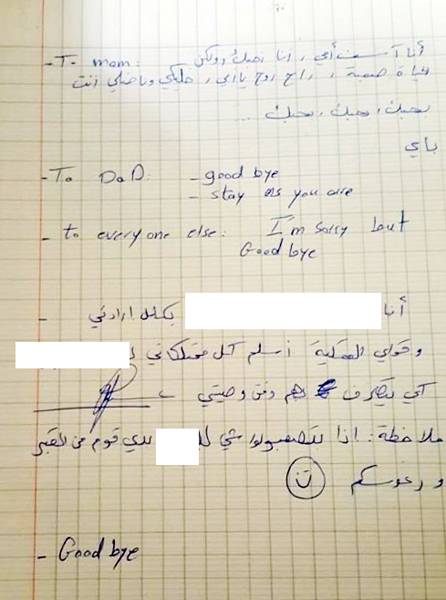 - To mom: أنا آسف أمي، انا بحبك ولكن
الحياة صعبة، راح روح يا امي، خليكي وما ضلي انت
بحبك، بحبك، بحبك
باي
- To DaD: - good bye
- stay as you are
- to everyone else: I'm sorry but
Good bye
- أنا بكامل ارادتي
و قواي العقلية أسلم كل ممتلكاتي ل
كي يتصرف هم وفق وصيتي
ملاحظة: اذا شي لل بدي قوم من القبر
و رعوسكم
- Good bye